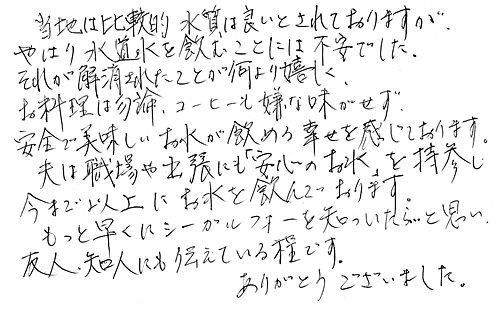 当地は比較的 水質は良いとされておりますが、
やはり 水道水を飲むことには不安でした。
それが解消されたことが何より嬉しく、
お料理は勿論、コーヒーも嫌な味がせず、
安全で美味しいお水が飲める幸せを感じております。
夫は職場や出張にも「安心のお水」を持参し
今まで以上にお水を飲んでおります。
もっと早くにシーガルフォーを知っていたらと思い、
友人、知人にも伝えている程です。
ありがとうございました。